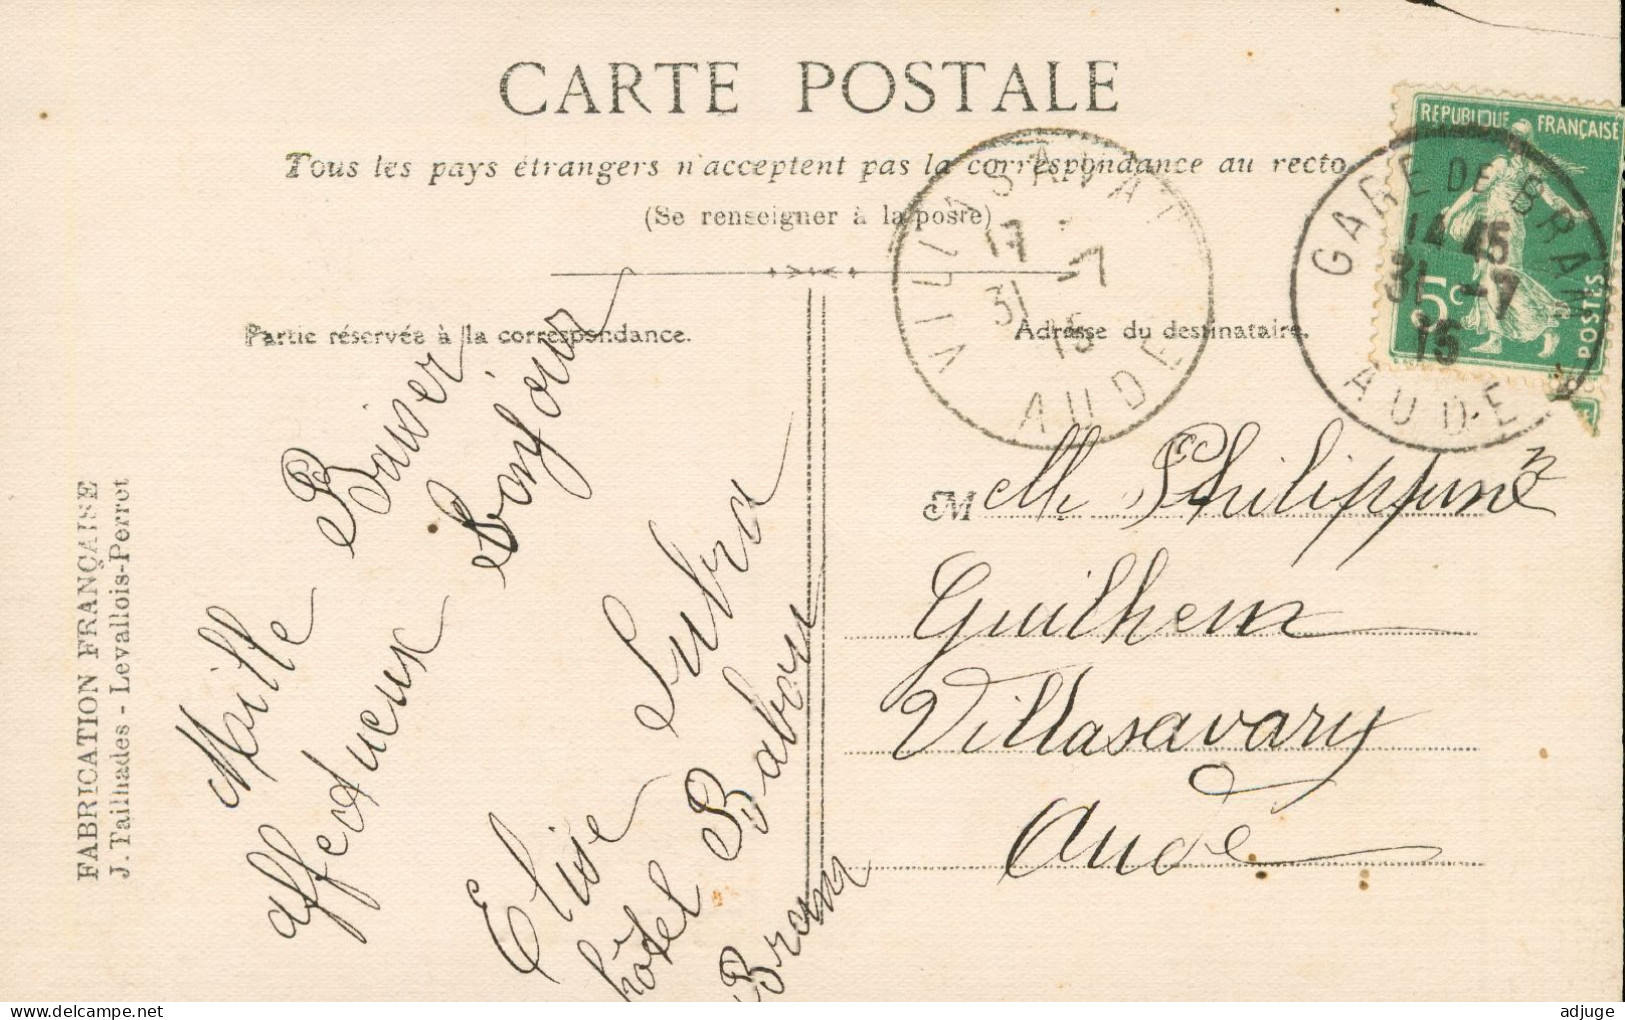 CARTE POSTALE
Tous les pays étrangers n'acceptent pas la correspondance au recto
(Se renseigner à la poste)
Partie réservée à la correspondance.
Adresse du destinataire.
REPUBLIQUE FRANÇAISE
5c
POSTES
GARE DE BRAM
14 45
31 -7
15
AUDE
VILLASAVARY
17
31 -7
15
AUDE
FABRICATION FRANÇAISE
J. Tailhades - Levallois-Perrot
Maille Baiser
affectueux Bonjour
Elise Subra
hôtel Babou
Bram
M Mlle Philippine
Guilhem
Villasavary
Aude
adjuge